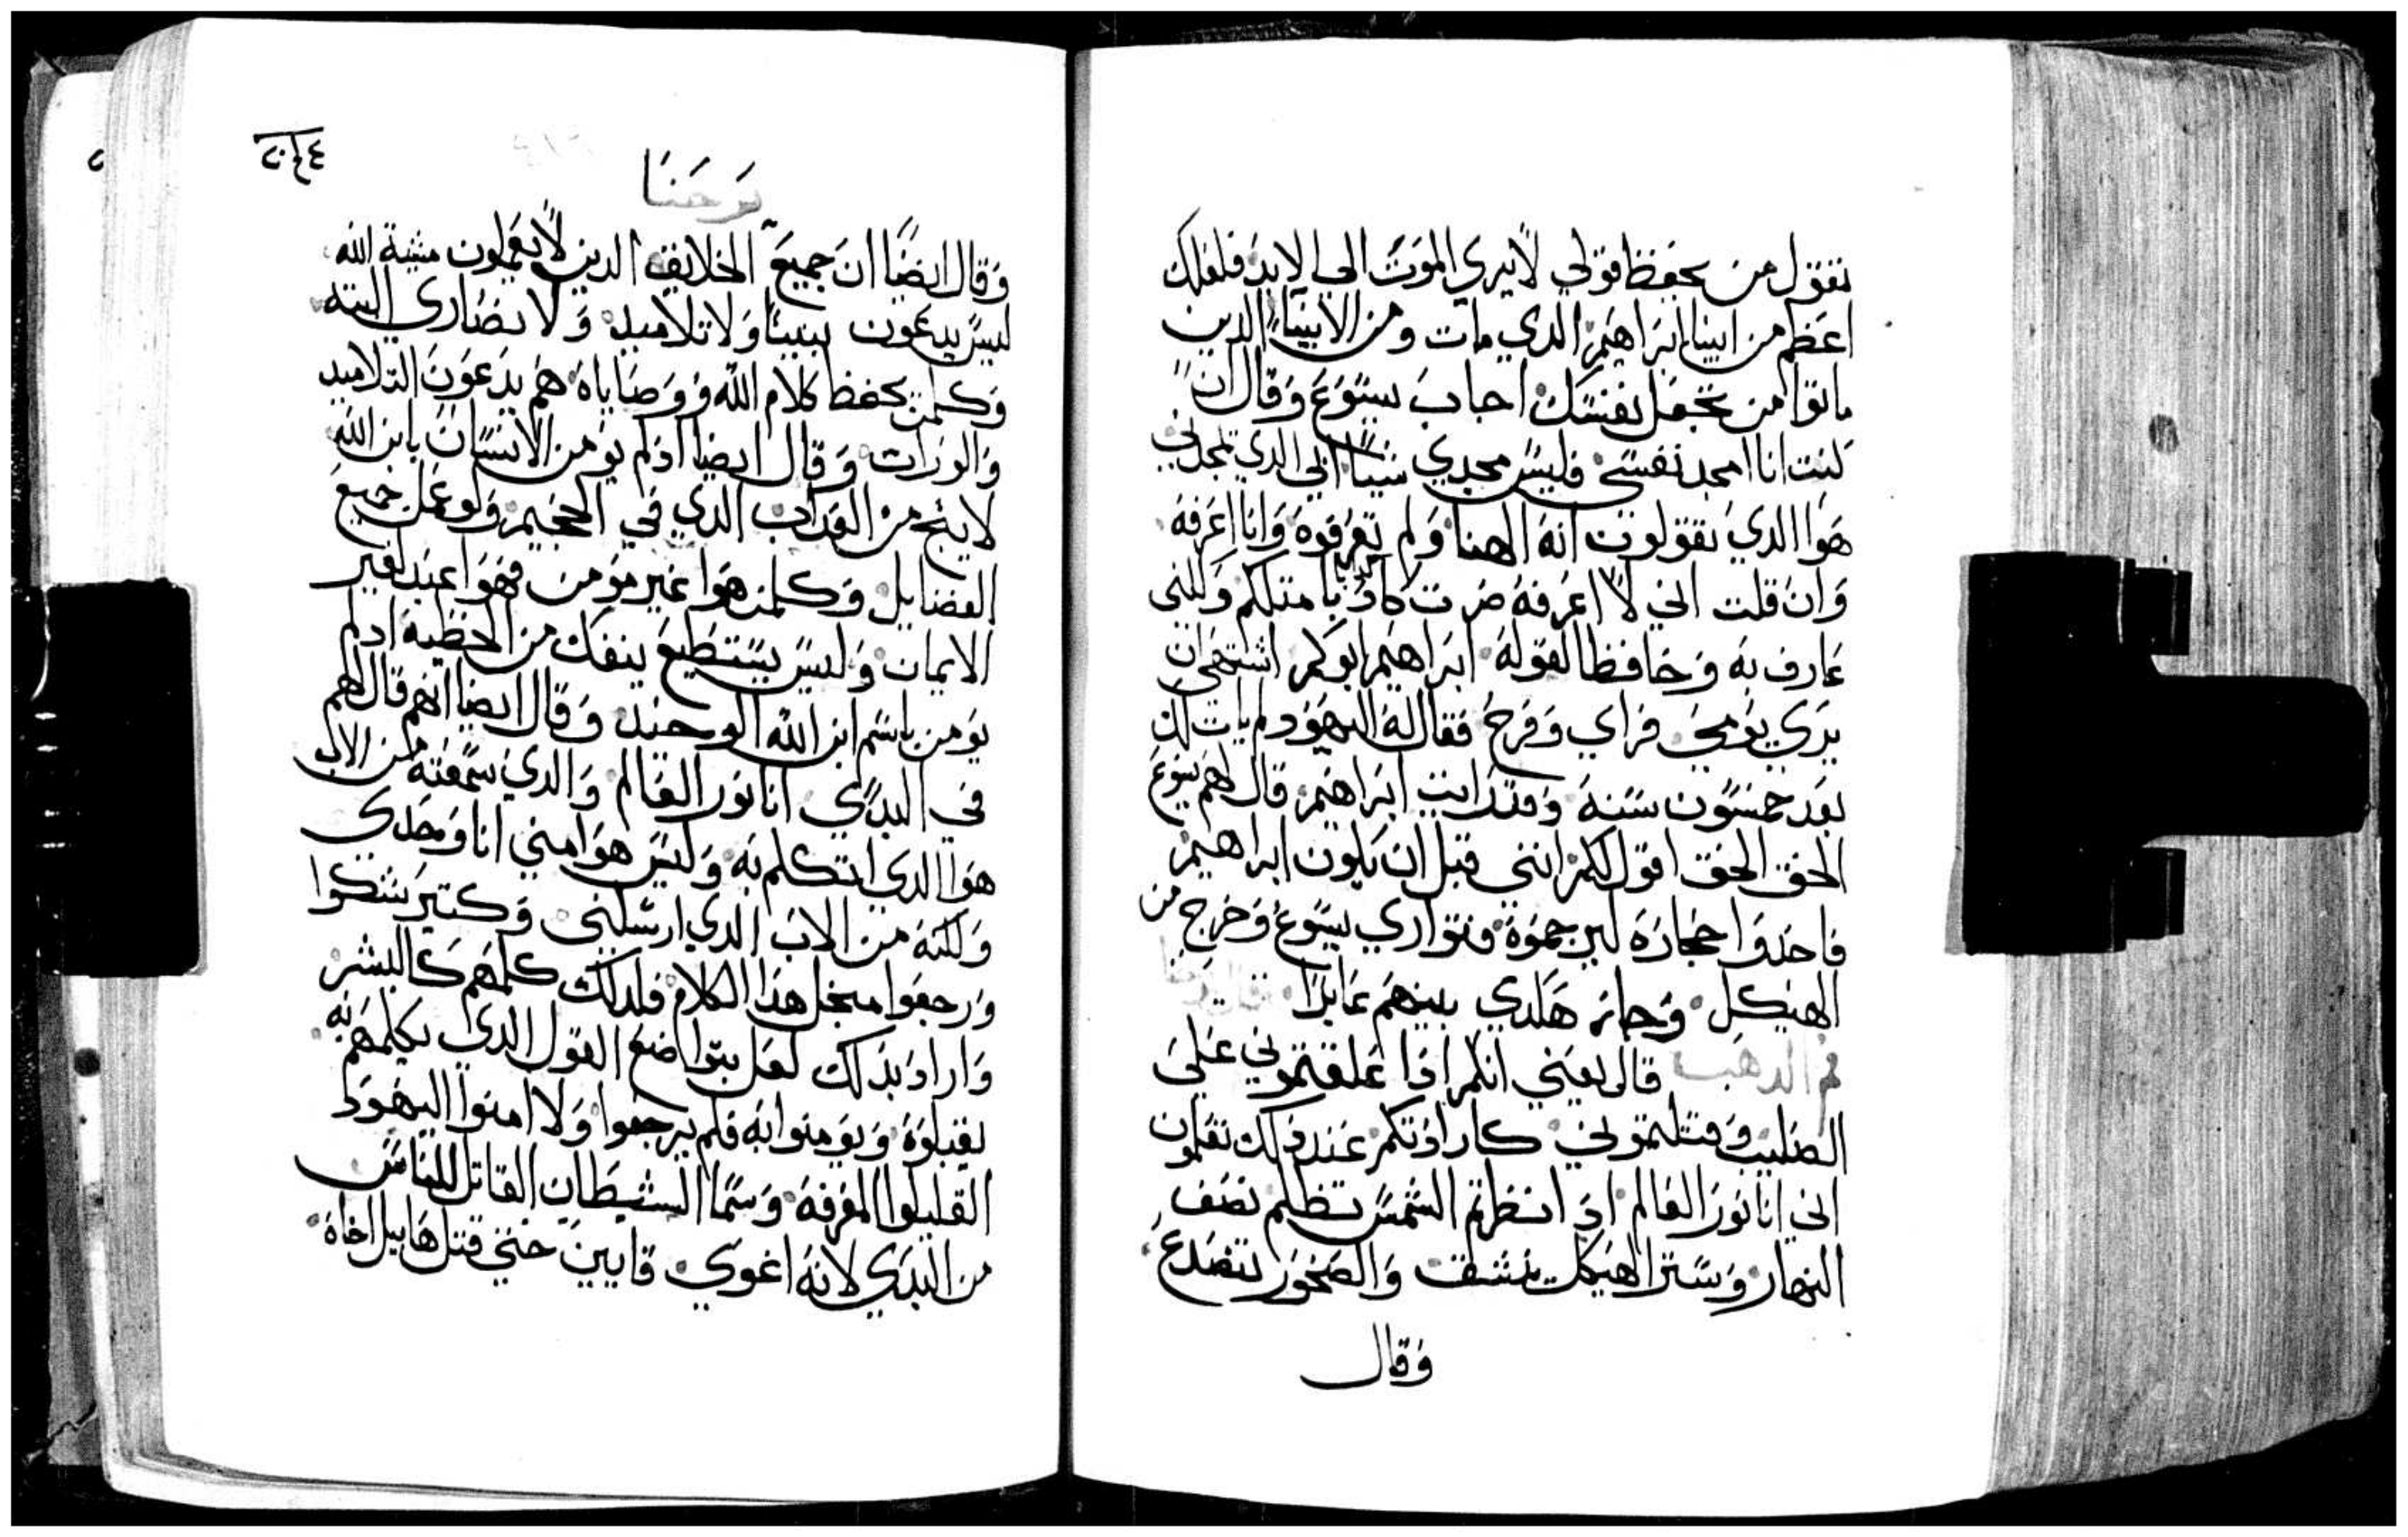 تقول من يحفظ قولي لا يري الموت الي الابد فلعلك
اعظم من ابينا ابراهيم الدي مات ومن الانبيا الدين
ماتوا من تجعل نفسك اجاب يسوع وقال ان
كنت انا امجد نفسي فليس مجدي شيا ابي الدي يمجدني
هوا الدي تقولون انه الهنا ولم تعرفوه وانا اعرفه
وان قلت اني لا اعرفه صرت كادبا مثلكم ولكني
عارف به وحافظا لقوله ابراهيم ابوكم اشتهي ان
يري يومي فراي وفرح فقال له اليهود لم يات لك
بعد خمسون سنه وقد رايت ابراهيم قال لهم يسوع
الحق الحق اقول لكم انني قبل ان يكون ابراهيم
فاخدوا حجاره ليرجموه فتواري يسوع وخرج من
الهيكل وجاز هلدي بينهم عابرا
فم الدهب قال يعني انكم ادا علقتموني علي
الصليب وقتلتموني كارادتكم عند دلك تعلمون
اني انا نور العالم ادي انظرتم الشمس تظلم نصف
النهار وستر الهيكل ينشق والصخور تتصدع
وقال
٢٠٤٤
يوحنا
وقال ايضا ان جميع الخلايق الدين لا يعملون مشية الله
ليس يدعون بنينا ولا تلاميد ولا نصاري البته
وكلمن يحفظ كلام الله ووصاياه هم يدعون التلاميد
والوراث وقال ايضا اد لم يومن الانسان بابن الله
لا ينج من العداب الدي في الجحيم ولو عمل جميع
الفضايل وكلمن هوا غير مومن فهوا عبد لغير
الايمان وليس يستطيع ينفك من الخطيه اد لم
يومن باسم ابن الله الوحيد وقال ايضا انهم قال لهم
في البدي انا نور العالم والدي سمعته من الاب
هوا الدي اتكلم به وليس هوا مني انا وحدي
ولكنه من الاب الدي ارسلني وكتير شكوا
ورجعوا منجل هدا الكلام فلدلك كلمهم كالبشر
واراد بدلك لعل بتواضع القول الدي يكلمهم به
يقبلوه ويومنوا به فلم يرجعوا ولا امنوا اليهود
القليلوا المعرفه وسما الشيطان القاتل للناس
من البدي لانه اغوي قايين حتي قتل هابيل اخاه